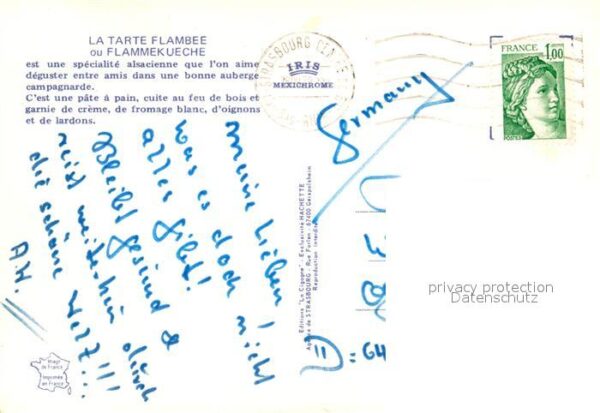 LA TARTE FLAMBEE
ou FLAMMEKUECHE
est une spécialité alsacienne que l'on aime
déguster entre amis dans une bonne auberge
campagnarde.
C'est une pâte à pain, cuite au feu de bois et
garnie de crème, de fromage blanc, d'oignons
et de lardons.
meine Lieben!
was es doch nicht
alles gibt!
Bleibt gesund &
reist weiterhin durch
die schöne Welt!!!
A.H.
IRIS
MEXICHROME
STRASBOURG
FRANCE
1,00
POSTES
Germany
D = 64
Editions "La Cigogne" - Exclusivité HACHETTE
Agence de STRASBOURG - Rue Forlen - 67400 Geispolsheim
Reproduction interdite
privacy protection
Datenschutz
Imagé
de France
Imprimée
en France